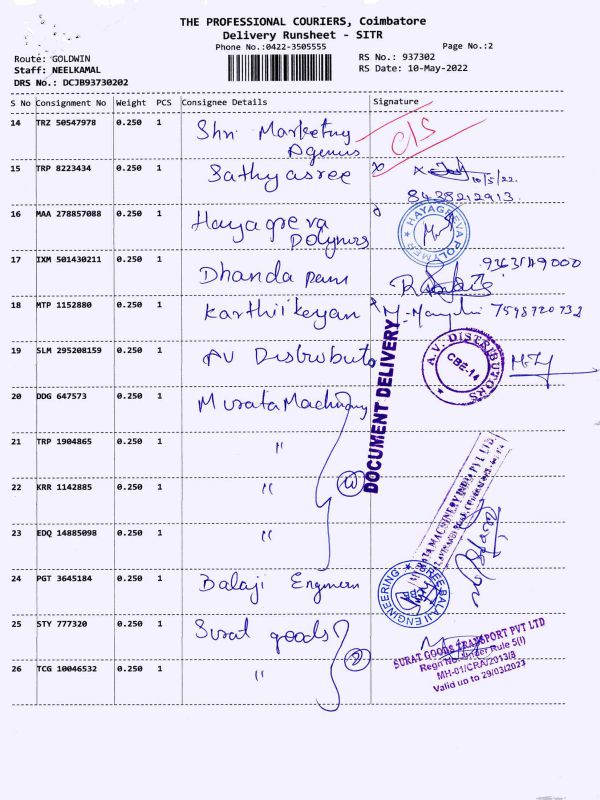 THE PROFESSIONAL COURIERS, Coimbatore
Delivery Runsheet - SITR
Phone No.:0422-3505555
Page No.:2
Route: GOLDWIN
RS No.: 937302
Staff: NEELKAMAL
RS Date: 10-May-2022
DRS No.: DCJB93730202
S No Consignment No Weight PCS Consignee Details Signature
14 TRZ 50547978 0.250 1 Shri Marketing
15 TRP 8223434 0.250 1 Sathyasree 10/5/22.
8438212913
16 MAA 278857088 0.250 1 Hayagreeva
Polymers
HAYAGREEVA POLYMER
17 IXM 501430211 0.250 1 Dhanda pani
18 MTP 1152880 0.250 1 Karthiikeyan 7598720732
19 SLM 295208159 0.250 1 AV Distributo
A.V. DISTRIBUTORS
CBE-14
DOCUMENT DELIVERY
20 DDG 647573 0.250 1 Murata Machinary
21 TRP 1904865 0.250 1 "
22 KRR 1142885 0.250 1 "
23 EDQ 14885098 0.250 1 "
MURATA MACHINERY INDIA PVT LTD
24 PGT 3645184 0.250 1 Balaji Engineers
SREE BALAJI ENGINEERING
25 STY 777320 0.250 1 Surat goods
26 TCG 10046532 0.250 1 "
SURAT GOODS TRANSPORT PVT LTD
Regn No. Under Rule 5(I)
MH-01/CRA/2013/8
Valid up to 29/03/2023